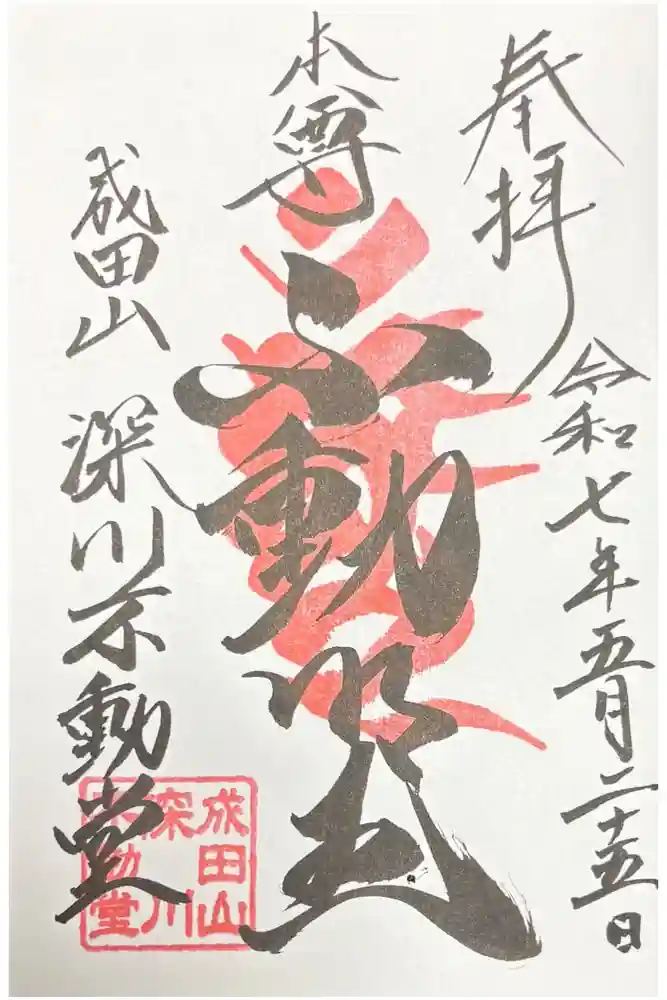 奉拝
令和七年五月二十五日
本尊
不動明王
成田山
深川不動堂
成田山
深川
不動堂